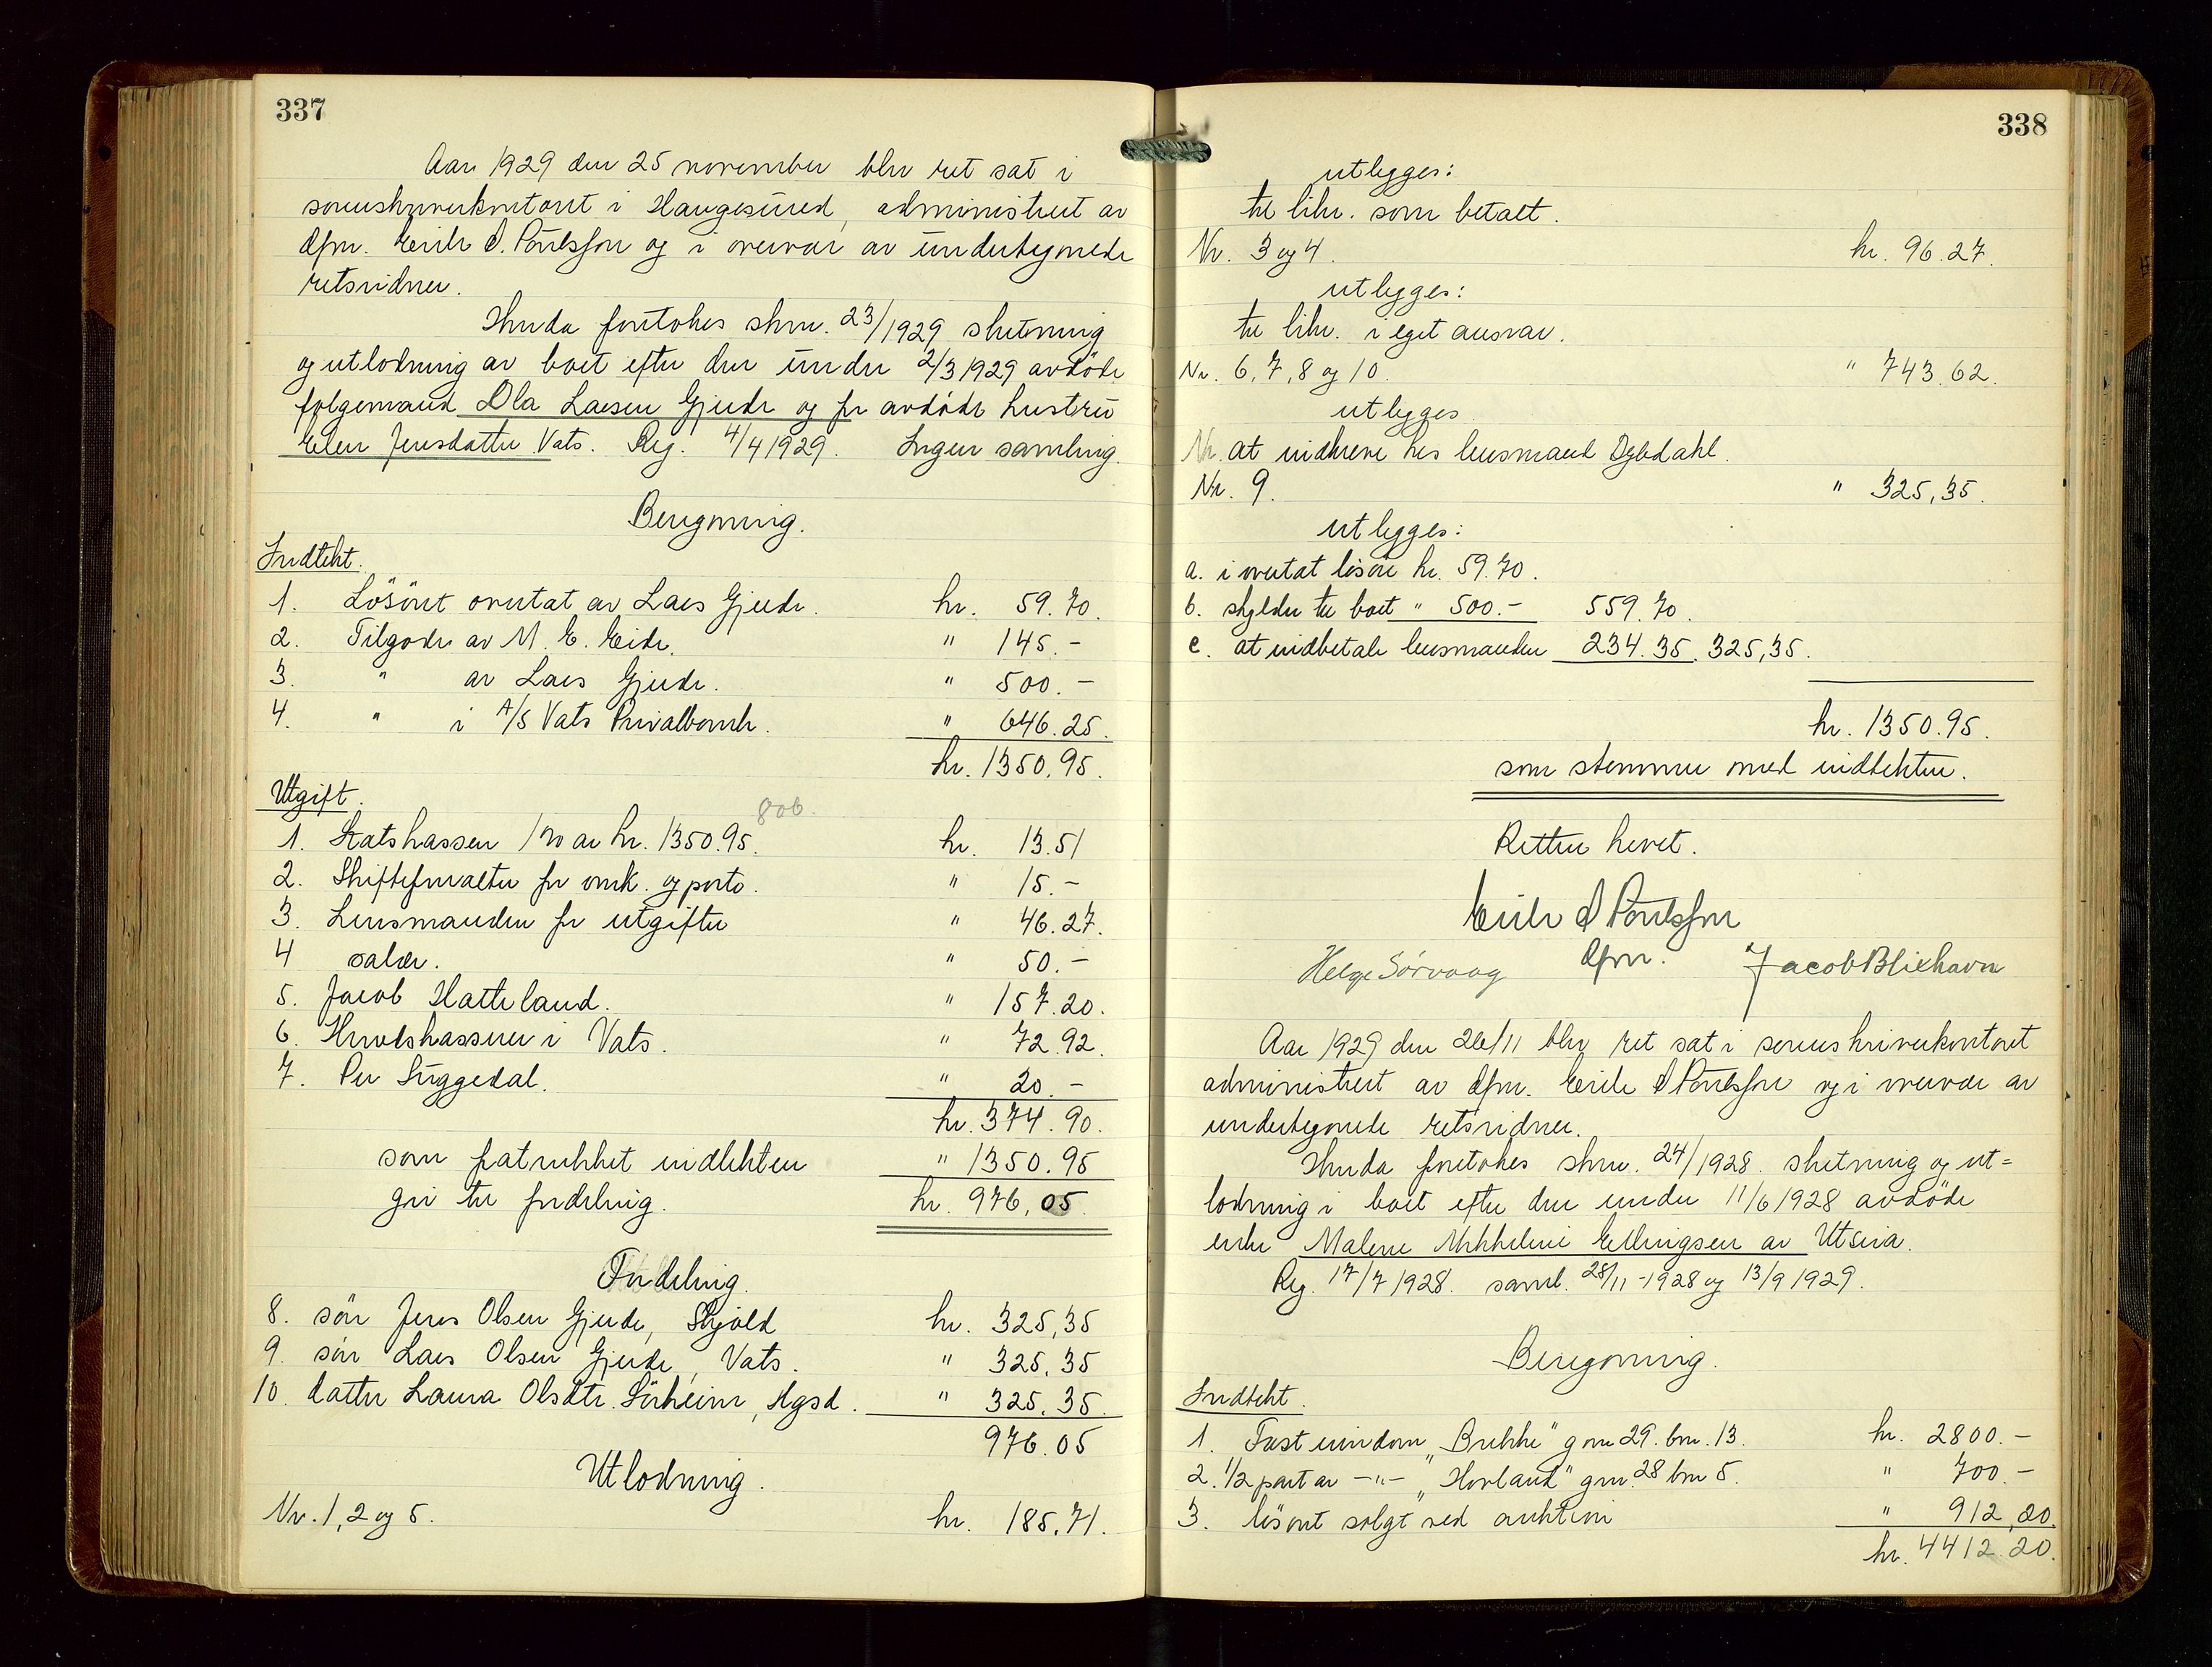 337
Aar 1929 den 25 november blev ret sat i
sorenskriverkontoret i Haugesund, administrert av
dfm. Eirik S. Poulsson og i overvær av undertegnede
retsvidner.
Hvorda foretokes skm. 23/1929 slutning
og utlodning av boet efter den under 2/3 1929 avdöde
følgemand Ola Larsen Gjerde og før avdöde hustru
Elen Jensdatter Vats. Reg. 4/4 1929. Ingen samling.
Beregning.
Indtekt.
1. Lösöret overtat av Lars Gjerde. kr. 59.70.
2. Tilgode av M. E. Eide. " 145.-
3. " av Lars Gjerde. " 500.-
4. " i A/S Vats Privatbank. " 646.25.
kr. 1350.95.
Utgift.
806.
1. Statskassen 1% av kr. 1350.95. kr. 13.51
2. Skifteforvalter for omk. og porto. " 15.-
3. Lensmanden for utgifter " 46.27.
4 salær. " 50.-
5. Jacob Hatteland. " 157.20.
6. Herredskassen i Vats. " 72.92.
7. Per Suggedal. " 20.-
kr. 374.90.
som fatrukket indtekten " 1350.95
gir til fordeling. kr. 976,05
Fordeling.
8. sön Jens Olsen Gjerde, Skjold kr. 325,35
9. sön Lars Olsen Gjerde, Vats. " 325,35
10. datter Laura Olsdtr. Sörheim, Hgsd. " 325.35.
976.05
Utlodning.
Nr. 1, 2 og 5. kr. 185.71.
338
utlegges:
til likv. som betalt.
Nr. 3 og 4. kr. 96.27.
utlegges:
til likv. i eget ansvar.
Nr. 6, 7, 8 og 10. " 743.62.
utlegges
Nr. at inkreve hos lensmand Dybdahl.
Nr. 9. " 325,35.
utlegges:
a. i overtat lösöre kr. 59.70.
b. skylder til boet " 500.- 559.70.
c. at indbetale lensmanden 234.35. 325,35.
kr. 1350.95.
som stemmer med indtekten.
Retten hevet.
Eirik S Poulsson
dfm.
Helge Sörvaag Jacob Blixhavn
Aar 1929 den 26/11 blev ret sat i sorenskriverkontoret
administrert av dfm. Eirik S Poulsson og i overvær av
undertegnede retsvidner.
Hvorda foretokes skm. 24/1928. slutning og ut=
lodning i boet efter den under 11/6 1928 avdöde
enke Malene Mikkeline Ellingsen av Utsira.
Reg. 17/7 1928. saml. 28/11-1928 og 13/9 1929.
Beregning.
Indtekt.
1. Fast eiendom "Brekke" gnr 29. bnr. 13. kr. 2800.-
2. 1/2 part av -"- "Hovland" gnr. 28 bnr 5. " 700.-
3. lösöret solgt ved auktion " 912,20
kr. 4412.20.